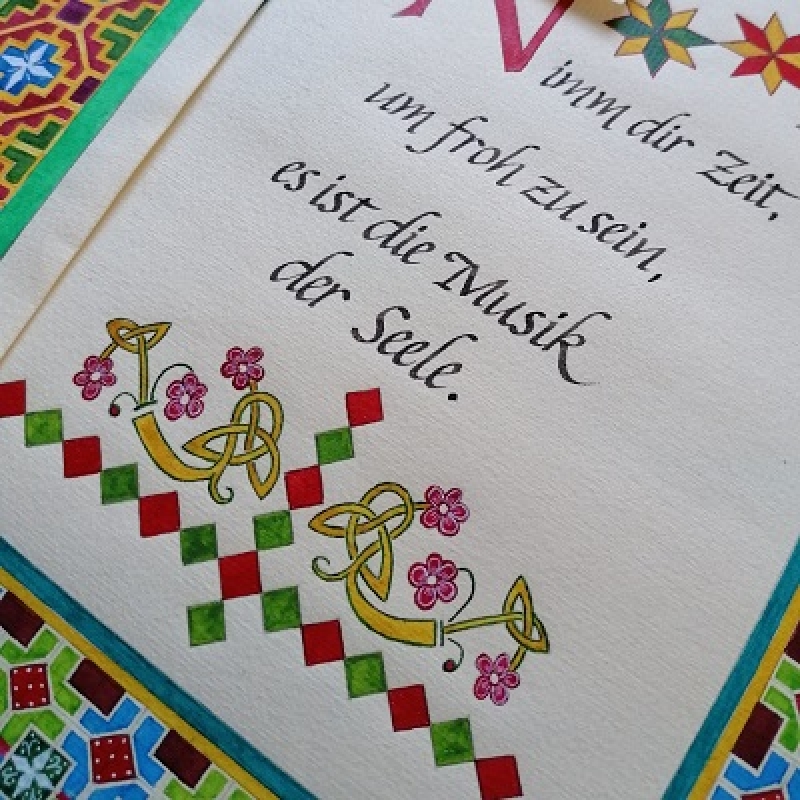 Nimm dir Zeit,
um froh zu sein,
es ist die Musik
der Seele.